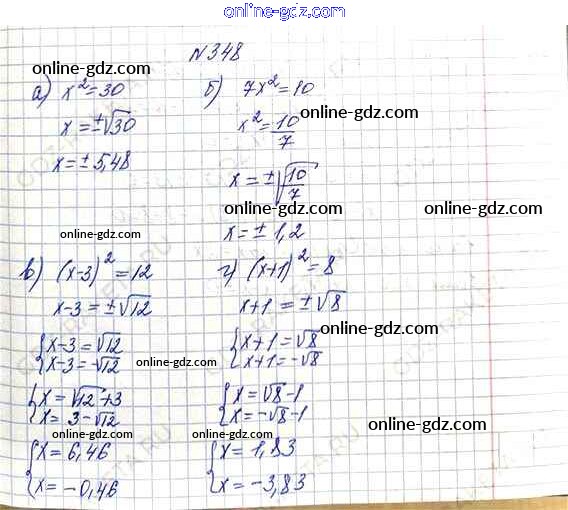 online-gdz.com
№348
online-gdz.com
а) x²=30
x=±√30
x=±5,48
б) 7x²=10
online-gdz.com
x²=10/7
x=±√10/7
online-gdz.com
online-gdz.com
online-gdz.com
x=±1,2
в) (x-3)²=12
x-3=±√12
{x-3=√12
{x-3=-√12
online-gdz.com
{x=√12+3
{x=3-√12
online-gdz.com
{x=6,46
{x=-0,46
г) (x+1)²=8
x+1=±√8
online-gdz.com
{x+1=√8
{x+1=-√8
{x=√8-1
{x=-√8-1
online-gdz.com
online-gdz.com
{x=1,83
{x=-3,83
online-gdz.com